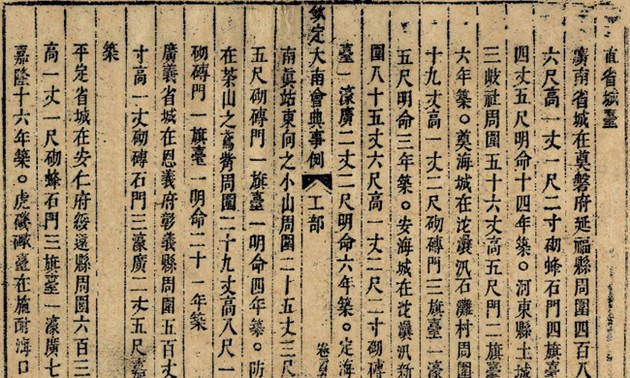 直省城臺
廣南省城在奠磐府延福縣周圍四百八
六尺高一丈一尺二寸砌蜂石門四旗臺
四丈五尺明命十四年築○河東縣土城
三歧社周圍五十六丈高五尺門二旗臺
六年築○奠海城在沱灢汛石灘村周圍
十九丈高一丈二尺砌磚門三旗臺一濠
五尺明命三年築○安海城在沱灢汛新
圍八十五丈六尺高一丈二尺二寸砌磚
臺一濠廣二丈二尺明命六年築○定海
欽定大南會典事例 工部
南眞站東向之小山周圍二十五丈三尺
五尺砌磚門一旗臺一明命四年築○防
在茶山之鳶觜周圍二十九丈高八尺一
砌磚門一旗臺一明命二十一年築
廣義省城在思義府彰義縣周圍五百丈
寸高一丈砌磚石門三濠廣二丈五尺嘉
築
平定省城在安仁府綏遠縣周圍六百三
高一丈一尺砌蜂石門三旗臺一濠廣七
嘉隆十六年築○虎磯礮臺在施耐海口